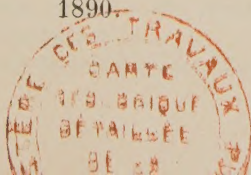 1890.
DES TRAVAUX
CARTE
DÉTAILLÉE
DE LA